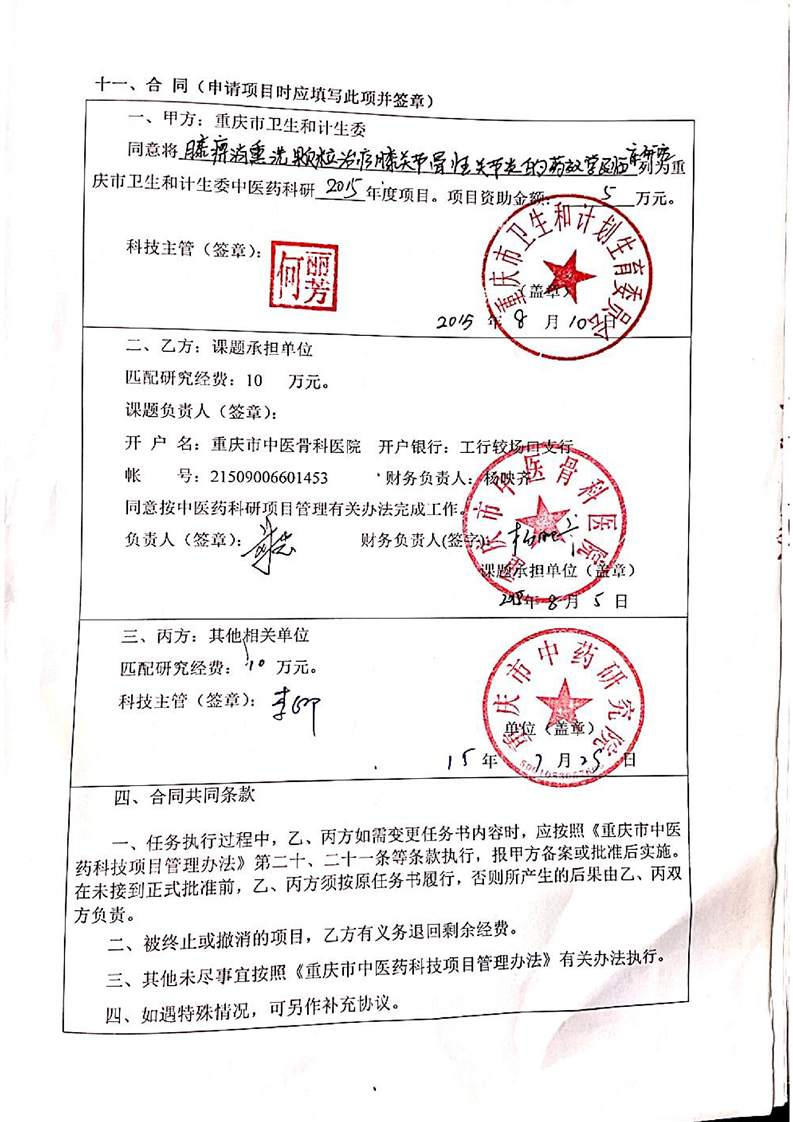 十一、合 同（申请项目时应填写此项并签章）
一、甲方：重庆市卫生和计生委
同意将 膝痹消熏洗颗粒治疗膝关节骨性关节炎的药效学及临床研究 列为重
庆市卫生和计生委中医药科研 2015 年度项目。项目资助金额： 5 万元。
科技主管（签章）：
何丽芳
重庆市卫生和计划生育委员会
（盖章）
2015 年 8 月 10 日
二、乙方：课题承担单位
匹配研究经费：10 万元。
课题负责人（签章）：
开 户 名：重庆市中医骨科医院 开户银行：工行较场口支行
帐 号：21509006601453 财务负责人：杨映齐
同意按中医药科研项目管理有关办法完成工作。
负责人（签章）： 财务负责人(签字)：
重庆市中医骨科医院
课题承担单位（盖章）
2015年 8 月 5 日
三、丙方：其他相关单位
匹配研究经费：10 万元。
科技主管（签章）：
重庆市中药研究院
单位（盖章）
15 年 7 月 25 日
四、合同共同条款
一、任务执行过程中，乙、丙方如需变更任务书内容时，应按照《重庆市中医
药科技项目管理办法》第二十、二十一条等条款执行，报甲方备案或批准后实施。
在未接到正式批准前，乙、丙方须按原任务书履行，否则所产生的后果由乙、丙双
方负责。
二、被终止或撤消的项目，乙方有义务退回剩余经费。
三、其他未尽事宜按照《重庆市中医药科技项目管理办法》有关办法执行。
四、如遇特殊情况，可另作补充协议。